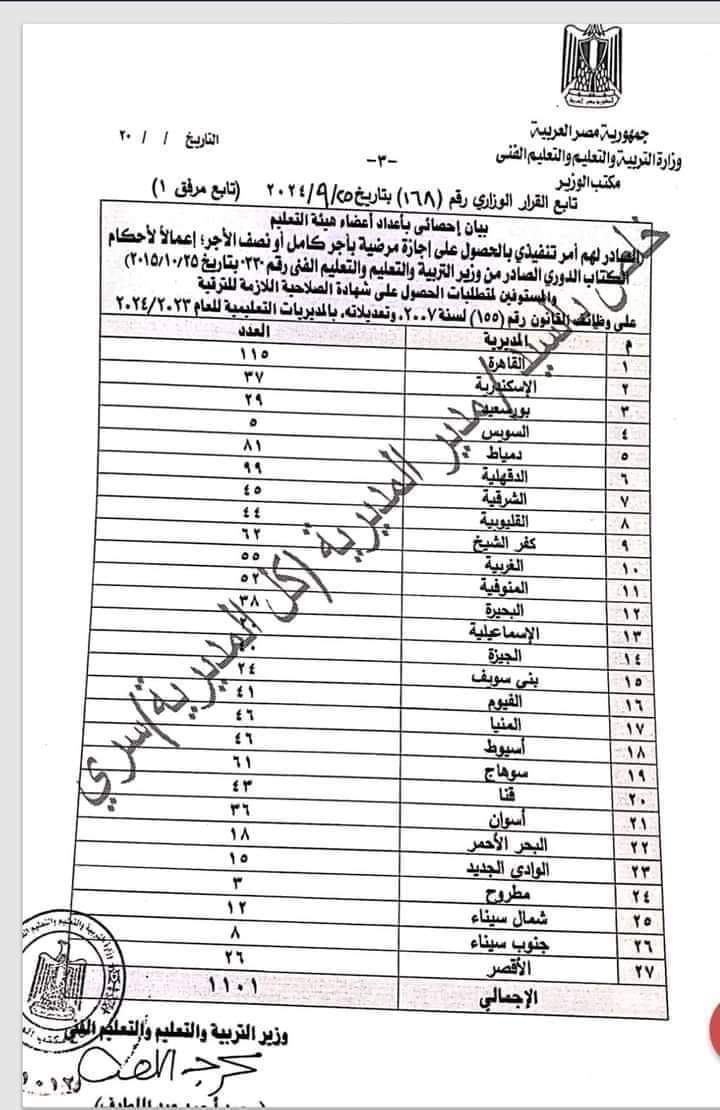 جمهورية مصر العربية
وزارة التربية والتعليم والتعليم الفنى
مكتب الوزير
التاريخ / / ٢٠
-٣-
تابع القرار الوزاري رقم (١٦٨) بتاريخ ٢٠٢٤/٩/٢٥ (تابع مرفق ١)
بيان إحصائى بأعداد أعضاء هيئة التعليم
الصادر لهم أمر تنفيذي بالحصول على إجازة مرضية بأجر كامل أو نصف الأجر؛ إعمالاً لأحكام
الكتاب الدوري الصادر من وزير التربية والتعليم والتعليم الفنى رقم ٢٣٠ بتاريخ ٢٠١٥/١٠/٢٥)
والمستوفين لمتطلبات الحصول على شهادة الصلاحية اللازمة للترقية
على وظائف القانون رقم (١٥٥) لسنة ٢٠٠٧، وتعديلاته، بالمديريات التعليمية للعام ٢٠٢٤/٢٠٢٣
م المديرية العدد
١ القاهرة ١١٥
٢ الإسكندرية ٣٧
٣ بورسعيد ٢٩
٤ السويس ٥
٥ دمياط ٨١
٦ الدقهلية ٩٩
٧ الشرقية ٤٥
٨ القليوبية ٤٤
٩ كفر الشيخ ٦٢
١٠ الغربية ٥٥
١١ المنوفية ٥٢
١٢ البحيرة ٣٨
١٣ الإسماعيلية
١٤ الجيزة
١٥ بنى سويف ٢٤
١٦ الفيوم ٤١
١٧ المنيا ٤٦
١٨ أسيوط ٤٦
١٩ سوهاج ٦١
٢٠ قنا ٤٣
٢١ أسوان ٣٦
٢٢ البحر الأحمر ١٨
٢٣ الوادى الجديد ١٥
٢٤ مطروح ٣
٢٥ شمال سيناء ١٢
٢٦ جنوب سيناء ٨
٢٧ الأقصر ٢٦
الإجمالي ١١٠١
خاص بالسيد / مدير المديرية (كل المديرية) سري
وزير التربية والتعليم والتعليم الفنى